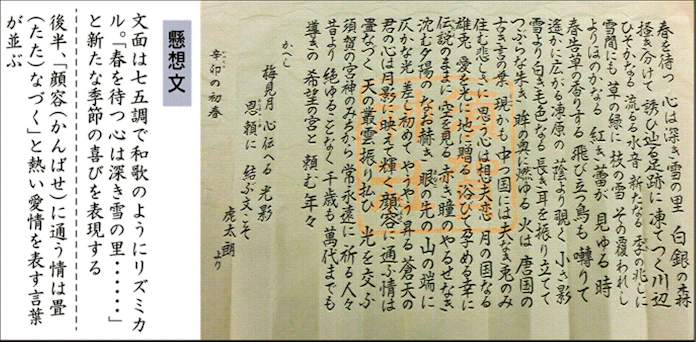 春を待つ 心は深き雪の里 白銀の森
掻き分けて 誘ひ辿る足跡に 凍てつく川辺
ひそかなる 流るる水音 新たなる 季の兆しに
雪間にも 草の緑に 枝の雪 その覆われし
よりほのかなる 紅き蕾が 見ゆる 時
春告草の香りする 飛び立つ鳥も 囀りて
遥かに広がる凍原の 蔭より覗く 小さ影
雪より白き毛色なる 長き耳を振り立てて
つぶらな朱き 眸の奥に燃ゆる 火は 唐国の
古き言の葉 現かも 中つ国には夫なき兎のみ
住む悲しさに 思う心は想夫恋 月の国なる
雄兎 愛を光に地に贈る 浴びて孕める幸に
伝説のままに 空を見る 赤き瞳の やるせなき
沈む夕陽の なお赫き 眼の先の 山の端に
仄かな光 差し初めて やうやう昇る 蒼天の
君の心は月影に 映えて輝く 顔容に 通ふ情は
畳なづく 天の叢雲 振り払ひ 光を交ふ
須賀の宮神のみちから 常永遠に 祈る人々
昔より 絶ゆることなく 千歳も 萬代までも
導きの 希望の宮と 頼む年々
かへし
梅見月 心伝へる 光影
恩頼に 結ぶ文こそ
虎太朗 より
辛卯の初春
懸想文
文面は七五調で和歌のようにリズミカ
ル。「春を待つ 心は深き雪の里・・・・・・」
と新たな季節の喜びを表現する
後半、「顔容(かんばせ)に通う情は畳
(たた)なづく」と熱い愛情を表す言葉
が並ぶ